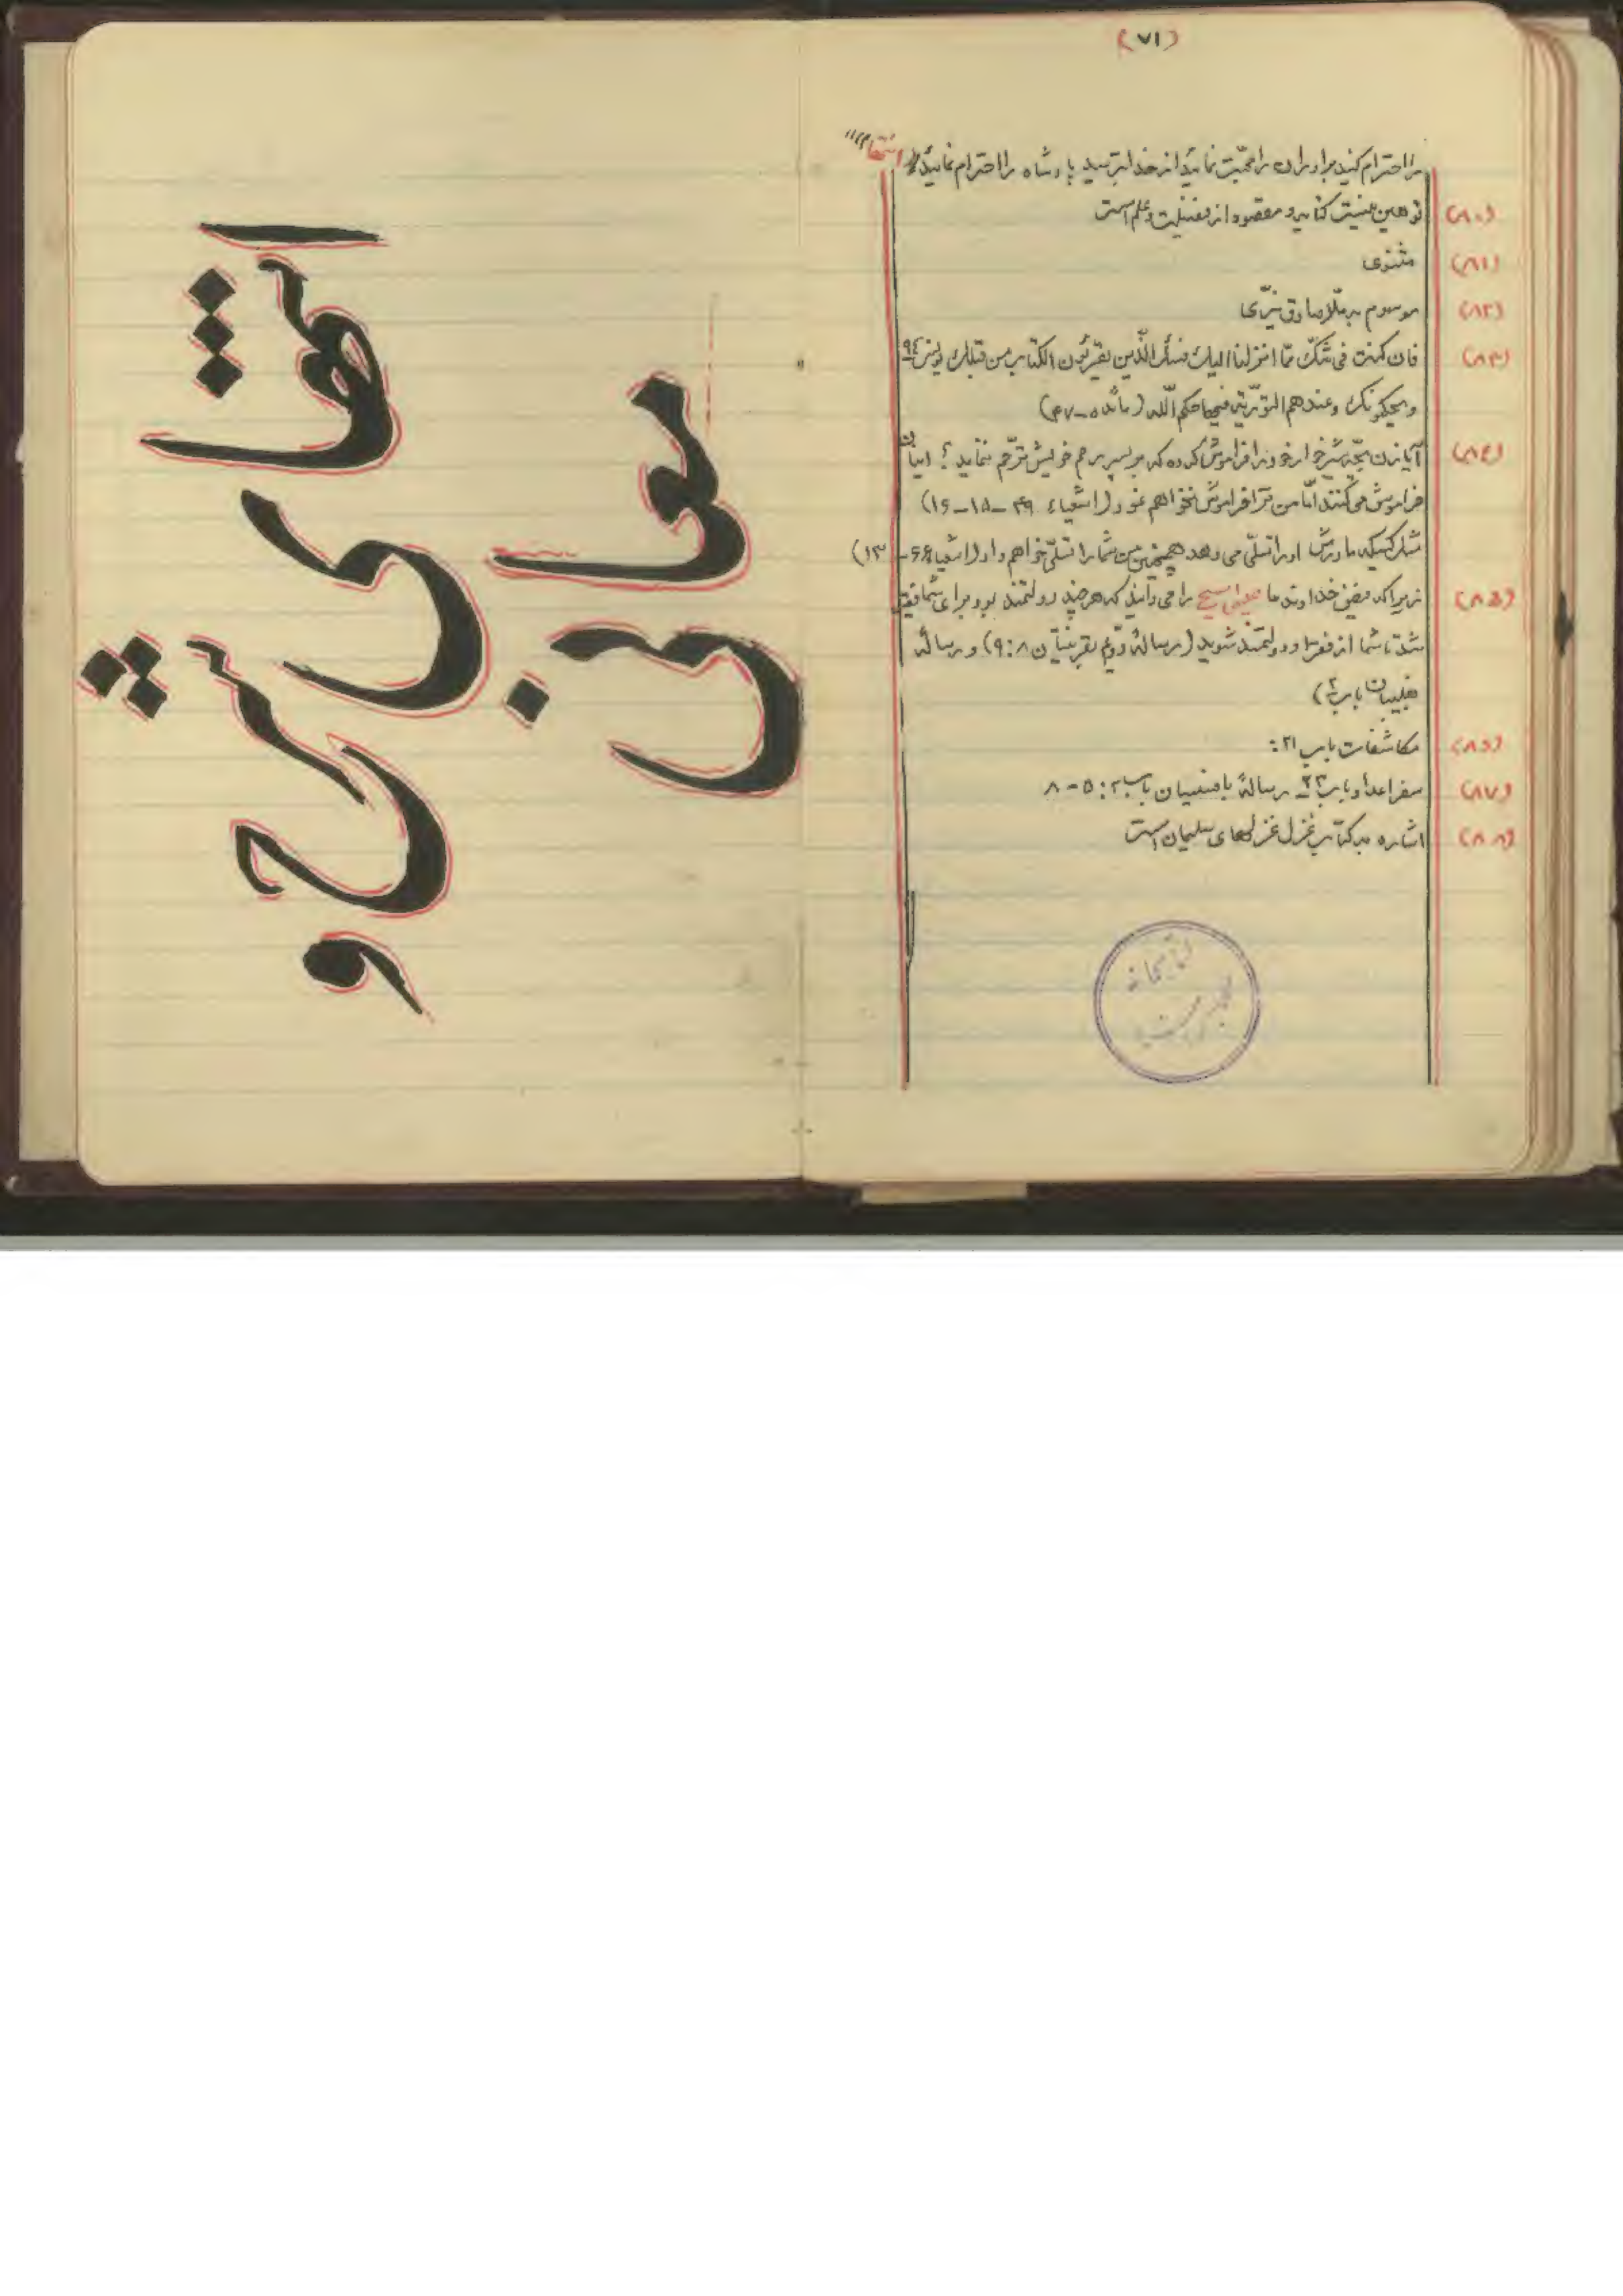 (۷۱)
را احترام کنید برادران را محبّت نمائید از خدا بترسید پادشاه را احترام نمائید انتها
(۸۰) توهین نیست کنایه و مقصود از فضیلت و علم است
(۸۱) مثنوی
(۸۲) موسوم به ملّا صادق
(۸۳) فان کنت فی شکّ ممّا انزلنا الیک فسئل الّذین یقرئون الکتاب من قبلک یونس ۹٤
و یحکمونک و عندهم التوریة فیها حکم اللّه (مائده ۵-۴۷)
(۸٤) آیا زن بچّه شیرخواره خود را فراموش کرده که بر پسر رحم خویش ترحّم ننماید؟ اینان
فراموش می‌کنند امّا من ترا فراموش نخواهم نمود (اشعیاء ۴۹-۱۵-۱۶)
مثل کسیکه مادرش او را تسلّی می دهد همچنین من شما را تسلّی خواهم داد (اشعیا ۶۶-۱۳)
(۸۵) زیرا که فیض خداوند ما عیسی مسیح را می دانید که هر چند دولتمند بود برای شما فقیر
شد تا شما از فقر او دولتمند شوید (رسالهٔ دوّم بقرنتیان ۸:۹) و رسالهٔ
فیلیپیان باب ۲)
(۸۶) مکاشفات باب ۲۱:
(۸۷) سفر اعداد باب ۲۲ رسالهٔ بافسسیان باب ۲: ۵-۸
(۸۸) اشاره به کتاب غزل غزلهای سلیمان است
کتابخانه
انتهای شرح و
معانی